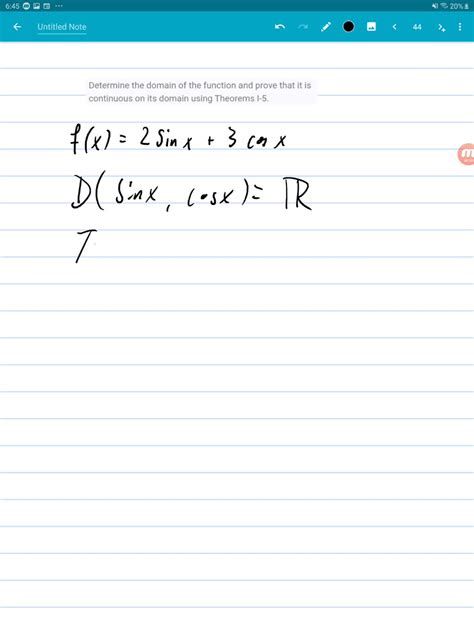 6:45
20%
Untitled Note
44
Determine the domain of the function and prove that it is
continuous on its domain using Theorems I-5.
f(x) = 2 sin x + 3 cos x
D( sinx, cosx) = ℝ
T